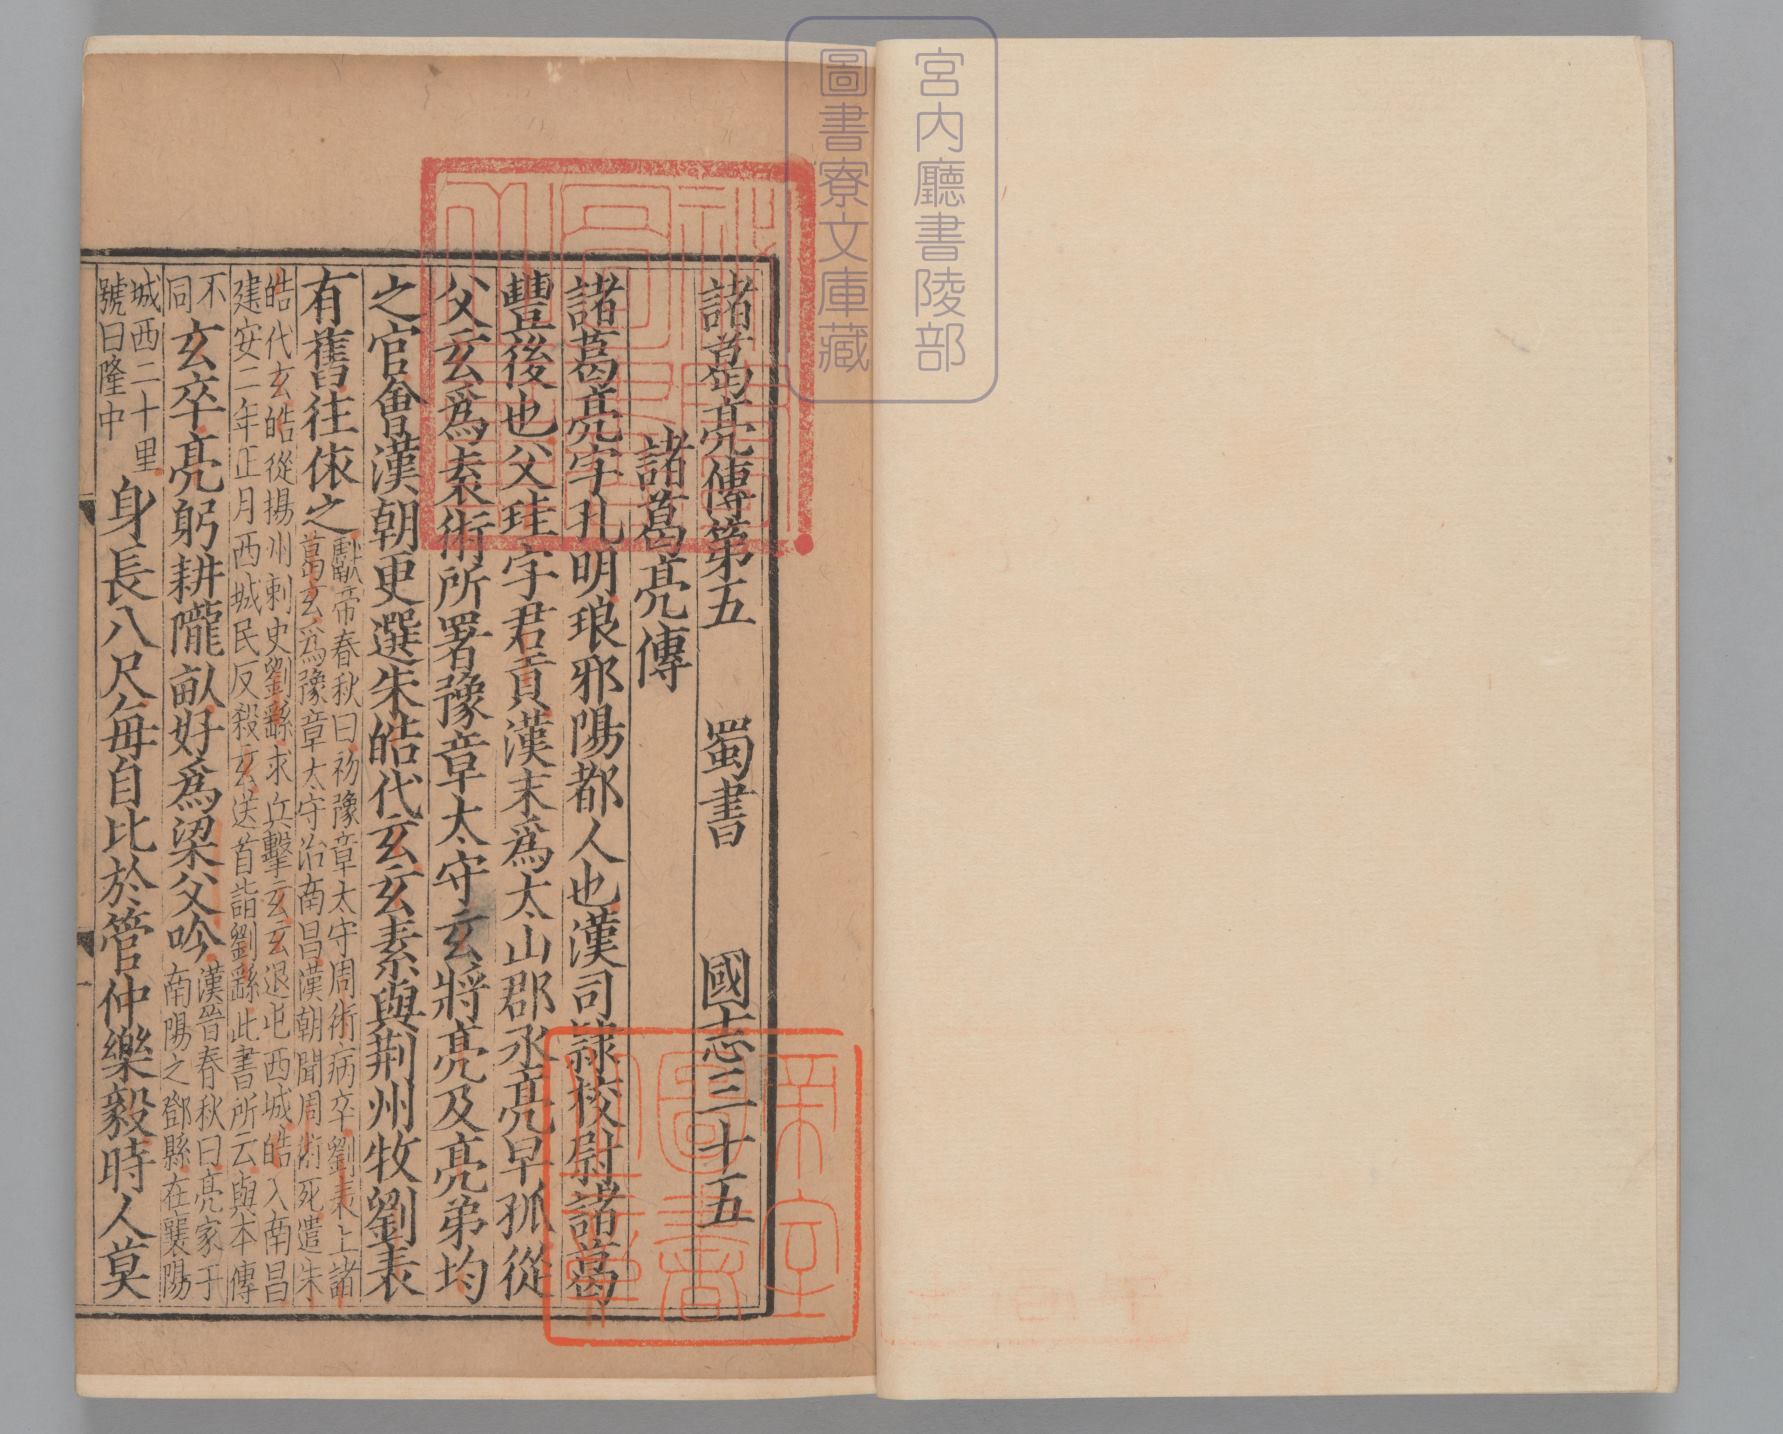 宮内廳書陵部
圖書寮文庫藏
諸葛亮傳第五 蜀書 國志三十五
諸葛亮傳
諸葛亮字孔明琅邪陽都人也漢司隸校尉諸葛
豐後也父珪字君貢漢末爲太山郡丞亮早孤從
父玄爲袁術所署豫章太守玄將亮及亮弟均
之官會漢朝更選朱皓代玄玄素與荆州牧劉表
有舊往依之
獻帝春秋曰初豫章太守周術病卒劉表上諸
葛玄爲豫章太守治南昌漢朝聞周術死遣朱
皓代玄皓從揚州刺史劉繇求兵擊玄玄退屯西城皓入南昌
建安二年正月西城民反殺玄送首詣劉繇此書所云與本傳
不
同
玄卒亮躬耕隴畝好爲梁父吟
漢晉春秋曰亮家于
南陽之鄧縣在襄陽
城西二十里
號曰隆中
身長八尺每自比於管仲樂毅時人莫
帝室
圖書